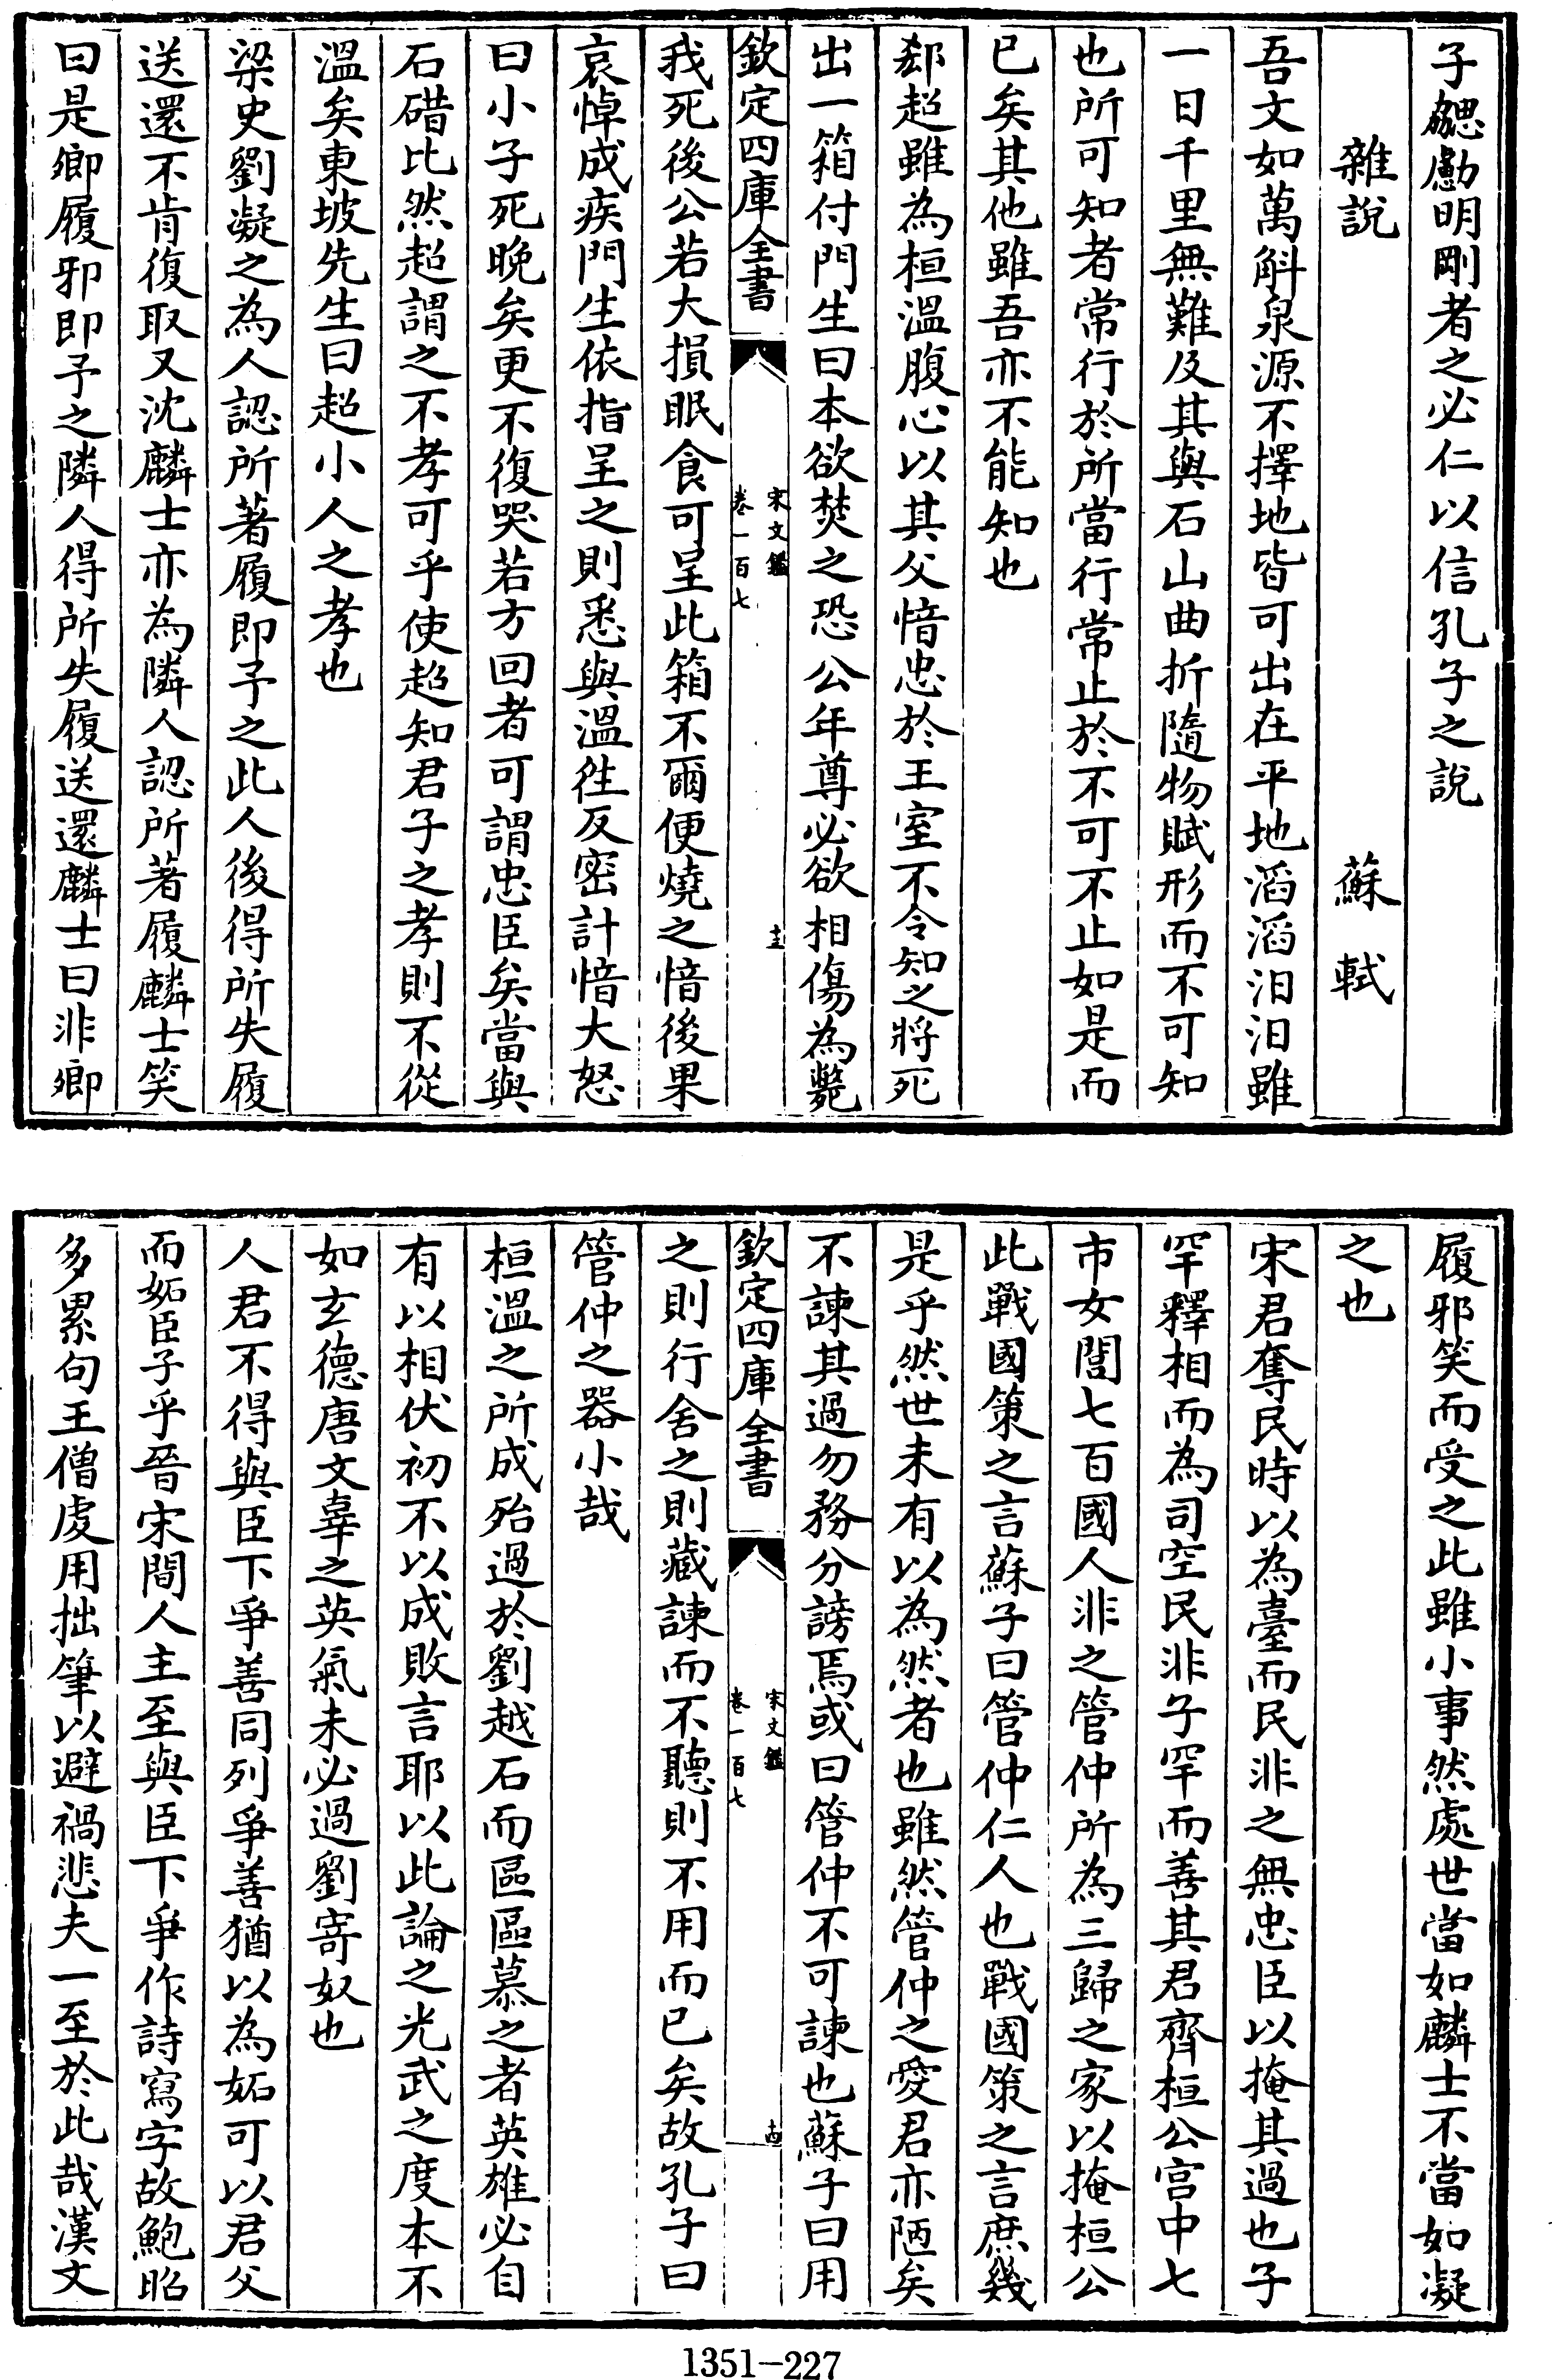 子勰勴明剛者之必仁以信孔子之說
雜說 蘇軾
吾文如萬斛泉源不擇地皆可出在平地滔滔汩汩雖
一日千里無難及其與石山曲折隨物賦形而不可知
也所可知者常行於所當行常止於不可不止如是而
已矣其他雖吾亦不能知也
郄超雖為桓溫腹心以其父愔忠於王室不令知之將死
出一箱付門生曰本欲焚之恐公年尊必欲相傷為斃
欽定四庫全書
宋文鑑
卷一百七
我死後公若大損眠食可呈此箱不爾便燒之愔後果
哀悼成疾門生依指呈之則悉與溫往反密計愔大怒
曰小子死晚矣更不復哭若方回者可謂忠臣矣當與
石碏比然超謂之不孝可乎使超知君子之孝則不從
溫矣東坡先生曰超小人之孝也
梁史劉凝之為人認所著履即予之此人後得所失履
送還不肯復取又沈麟士亦為隣人認所著履麟士笑
曰是卿履邪即予之隣人得所失履送還麟士曰非卿
履邪笑而受之此雖小事然處世當如麟士不當如凝
之也
宋君奪民時以為臺而民非之無忠臣以掩其過也子
罕釋相而為司空民非子罕而善其君齊桓公宮中七
市女閭七百國人非之管仲所為三歸之家以掩桓公
此戰國策之言蘇子曰管仲仁人也戰國策之言庶幾
是乎然世未有以為然者也雖然管仲之愛君亦陋矣
不諫其過勿務分謗焉或曰管仲不可諫也蘇子曰用
欽定四庫全書
宋文鑑
卷一百七
之則行舍之則藏諫而不聽則不用而已矣故孔子曰
管仲之器小哉
桓溫之所成殆過於劉越石而區區慕之者英雄必自
有以相伏初不以成敗言耶以此論之光武之度本不
如玄德唐文皐之英氣未必過劉寄奴也
人君不得與臣下爭善同列爭善猶以為妬可以君父
而妬臣子乎晉宋間人主至與臣下爭作詩寫字故鮑昭
多累句王僧虔用拙筆以避禍悲夫一至於此哉漢文
1351-227